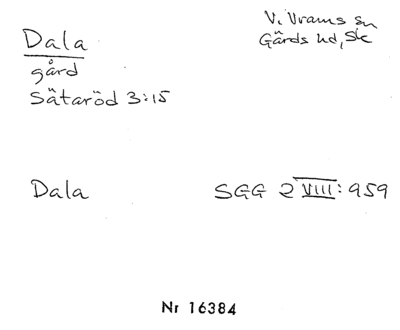 Dala
V. Vrams sn
Gärds hd, Sk
gård
Sätaröd 3:15
Dala
SGG 2 VIII: 959
Nr 16384